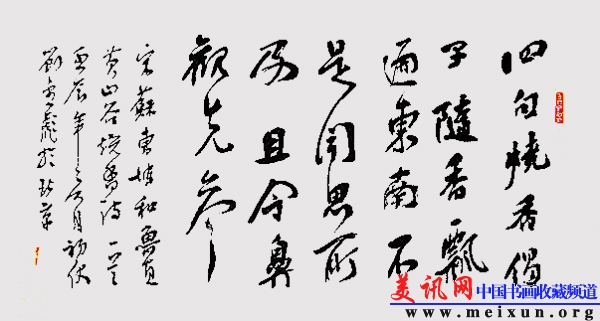 四句燒香偈
子隨香飄
遍東南不
是聞思所
及且令鼻
觀先參
宋蘇東坡和魯直
黃山谷燒香詩一首
辰年月初伏
於
美讯网 中国书画收藏频道
www.meixun.org